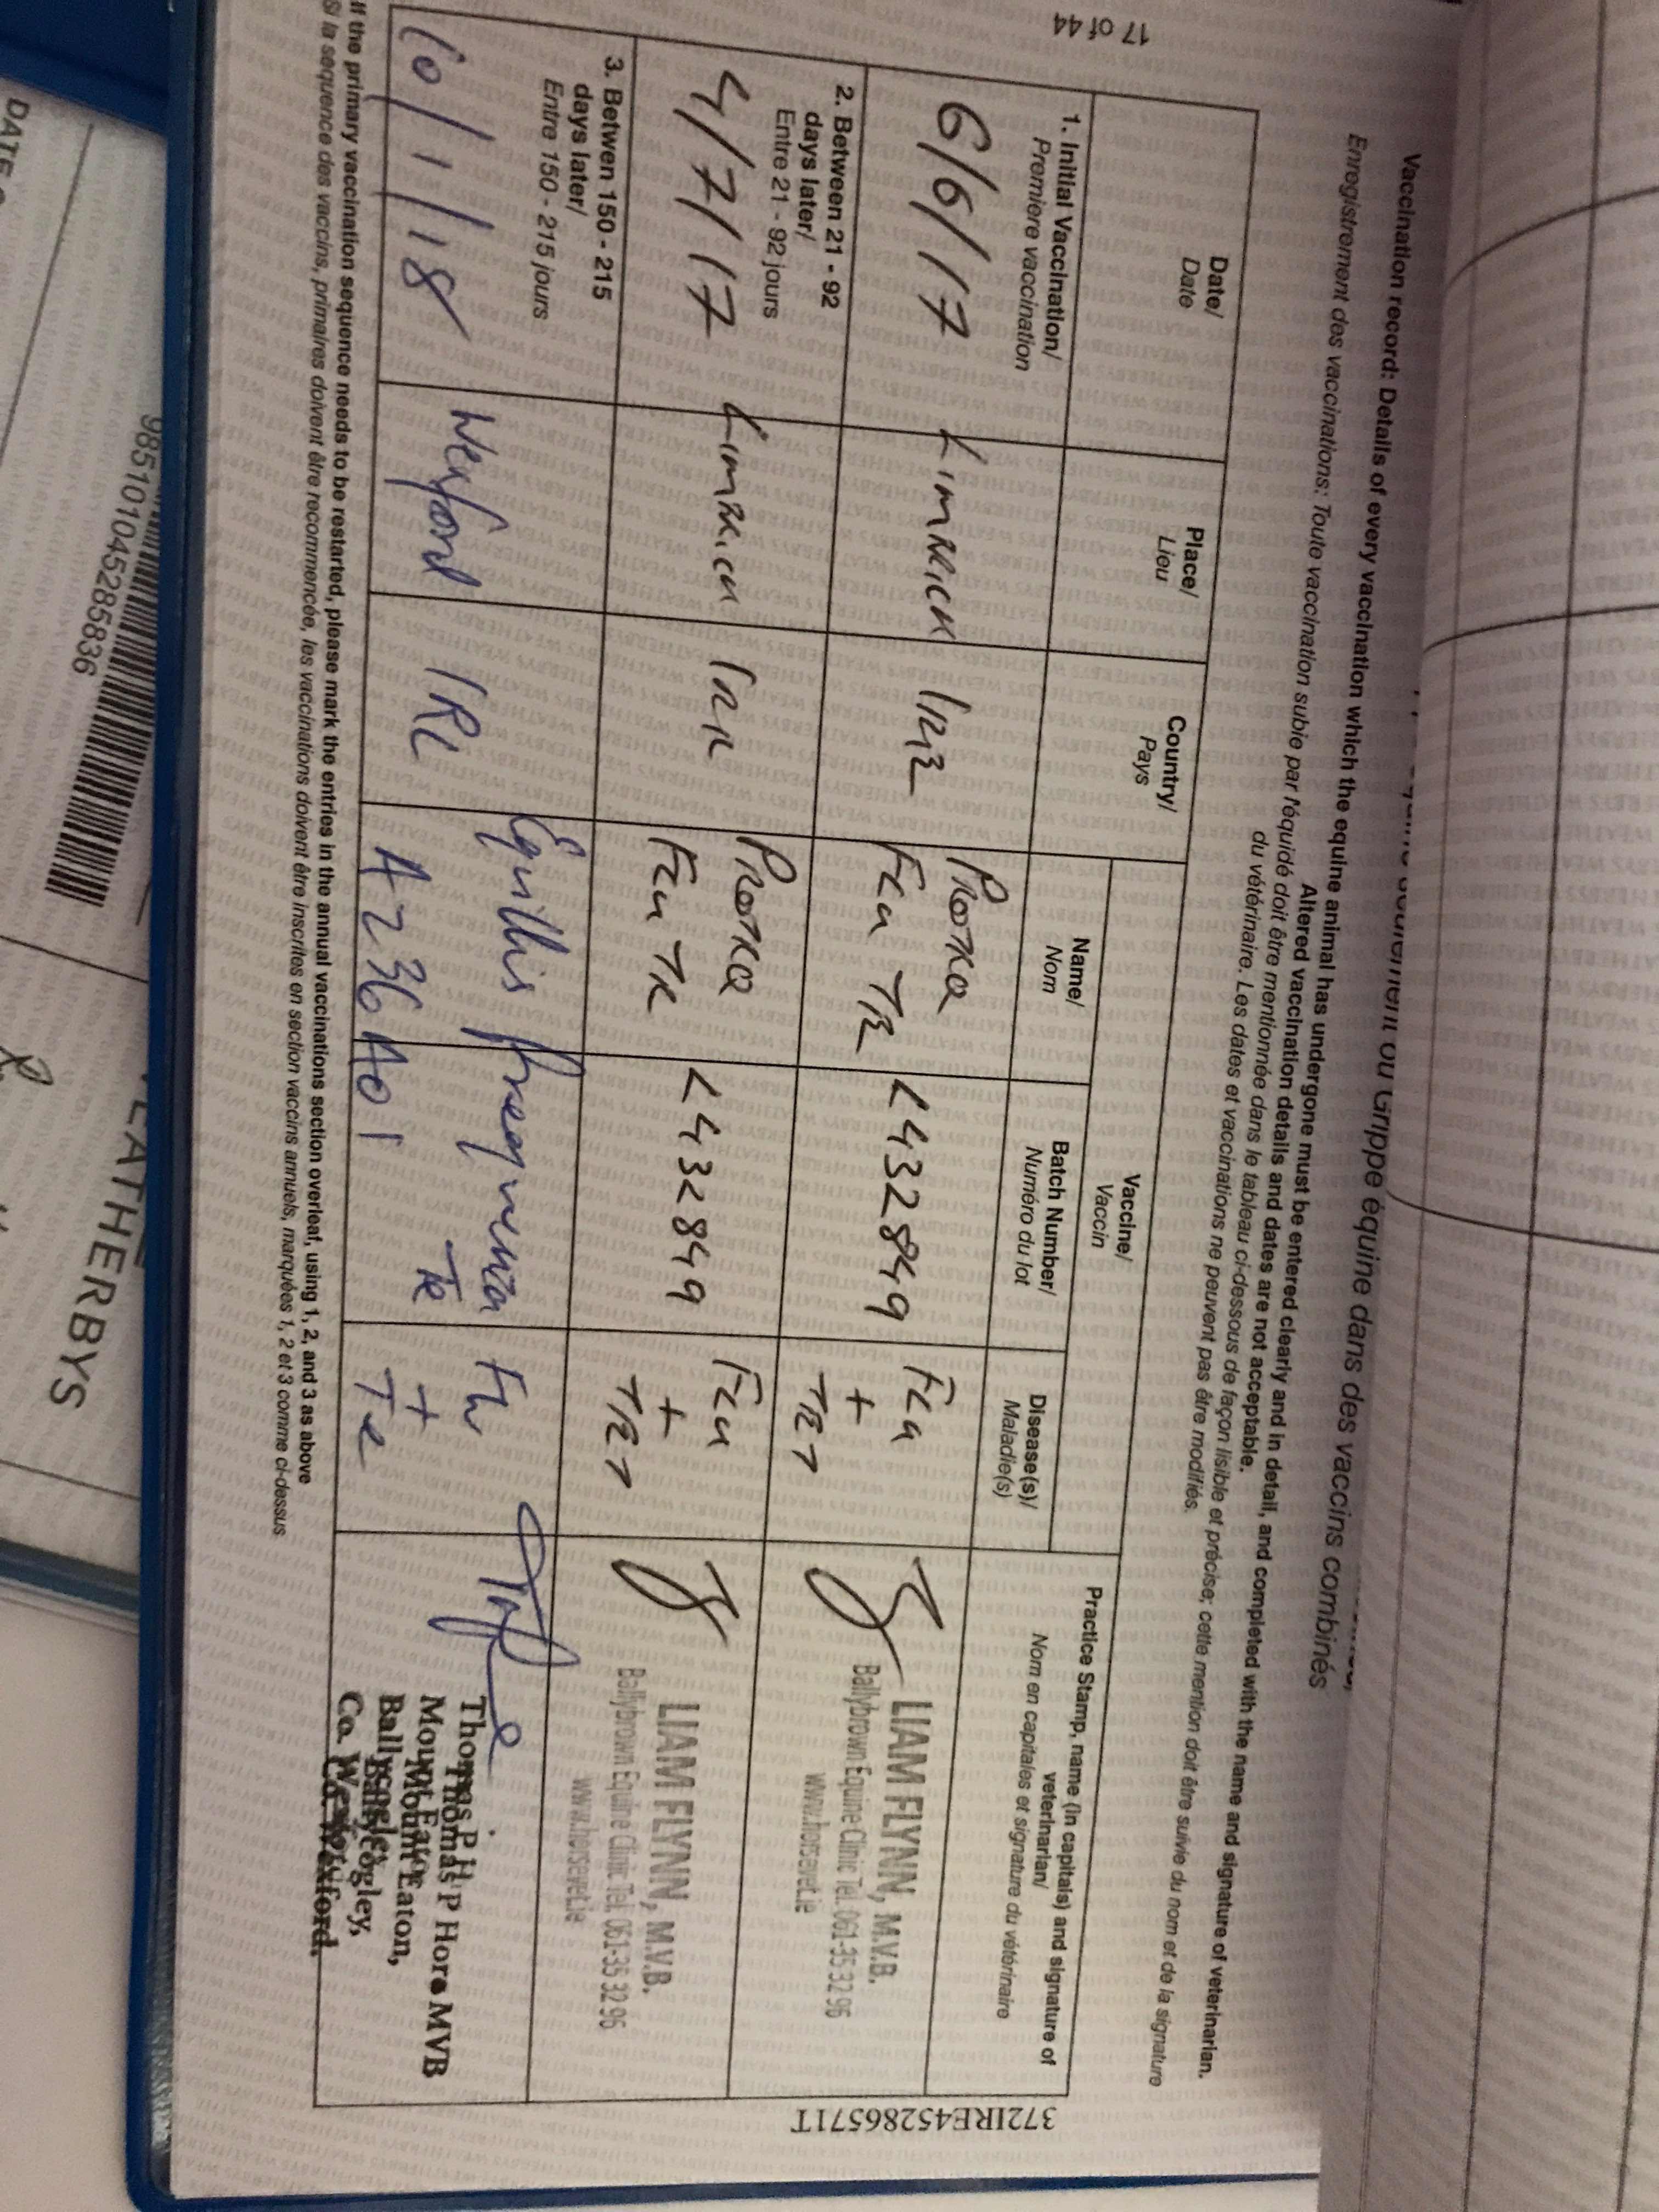 Grippe équine dans des vaccins combinés
Vaccination record: Details of every vaccination which the equine animal has undergone must be entered clearly and in detail, and completed with the name and signature of veterinarian.
Altered vaccination details and dates are not acceptable.
Enregistrement des vaccinations: Toute vaccination subie par l'équidé doit être mentionnée dans le tableau ci-dessous de façon lisible et précise; cette mention doit être suivie du nom et de la signature
du vétérinaire. Les dates et vaccinations ne peuvent pas être modifiés.
Date/
Date
Place/
Lieu
Country/
Pays
Vaccine/
Vaccin
Name/
Nom
Batch Number/
Numéro du lot
Disease(s)/
Maladie(s)
Practice Stamp, name (in capitals) and signature of
veterinarian/
Nom en capitales et signature du vétérinaire
1. Initial Vaccination/
Premiere vaccination
6/6/17
Limerick
IRE
Proteq
Flu TE
L432849
Flu
+
TET
LIAM FLYNN, M.V.B.
Ballybrown Equine Clinic Tel. 061-35 32 96
www.horsevet.ie
2. Between 21 - 92
days later/
Entre 21 - 92 jours
4/7/17
Limerick
IRE
Proteq
Flu TE
L432849
Flu
+
TET
LIAM FLYNN, M.V.B.
Ballybrown Equine Clinic Tel. 061-35 32 96
www.horsevet.ie
3. Between 150 - 215
days later/
Entre 150 - 215 jours
10/1/18
Wexford
IRL
Equilis Prequenza
Te
A236A01
Flu
+
Te
Thomas P Hore MVB
Mount Eaton,
Ballycogley,
Co. Wexford.
If the primary vaccination sequence needs to be restarted, please mark the entries in the annual vaccinations section overleaf, using 1, 2, and 3 as above
Si la sequence des vaccins, primaires doivent être recommencée, les vaccinations doivent être inscrites en section vaccins annuels, marquées 1, 2 et 3 comme ci-dessus
17 of 44
372IRE45286571T
985101045285836
WEATHERBYS
DATE